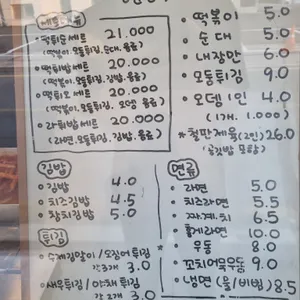 세트메뉴
떡튀순세트 21.000
(떡볶이, 모듬튀김, 순대, 음료)
떡튀밥세트 20.000
(떡볶이, 모듬튀김, 김밥, 음료)
떡튀오세트 20.000
(떡볶이, 모듬튀김, 오뎅, 음료)
라튀밥세트 20.000
(라면, 모듬튀김, 김밥, 음료)
떡볶이 5.0
순대 5.0
내장만 6.0
모둠튀김 9.0
오뎅1인 4.0
(1개. 1.000)
*철판제육(2인) 26.0
(공깃밥 포함)
김밥
김밥 4.0
치즈김밥 4.5
참치김밥 5.0
튀김
수제김말이/오징어튀김
각3개 3.0
새우튀김/야채튀김
각2개 3.0
면류
라면 5.0
치즈라면 5.5
짜계치 6.5
홍게라면 10.0
우동 8.0
꼬치어묵우동 9.0
냉면(물/비빔) 8.5